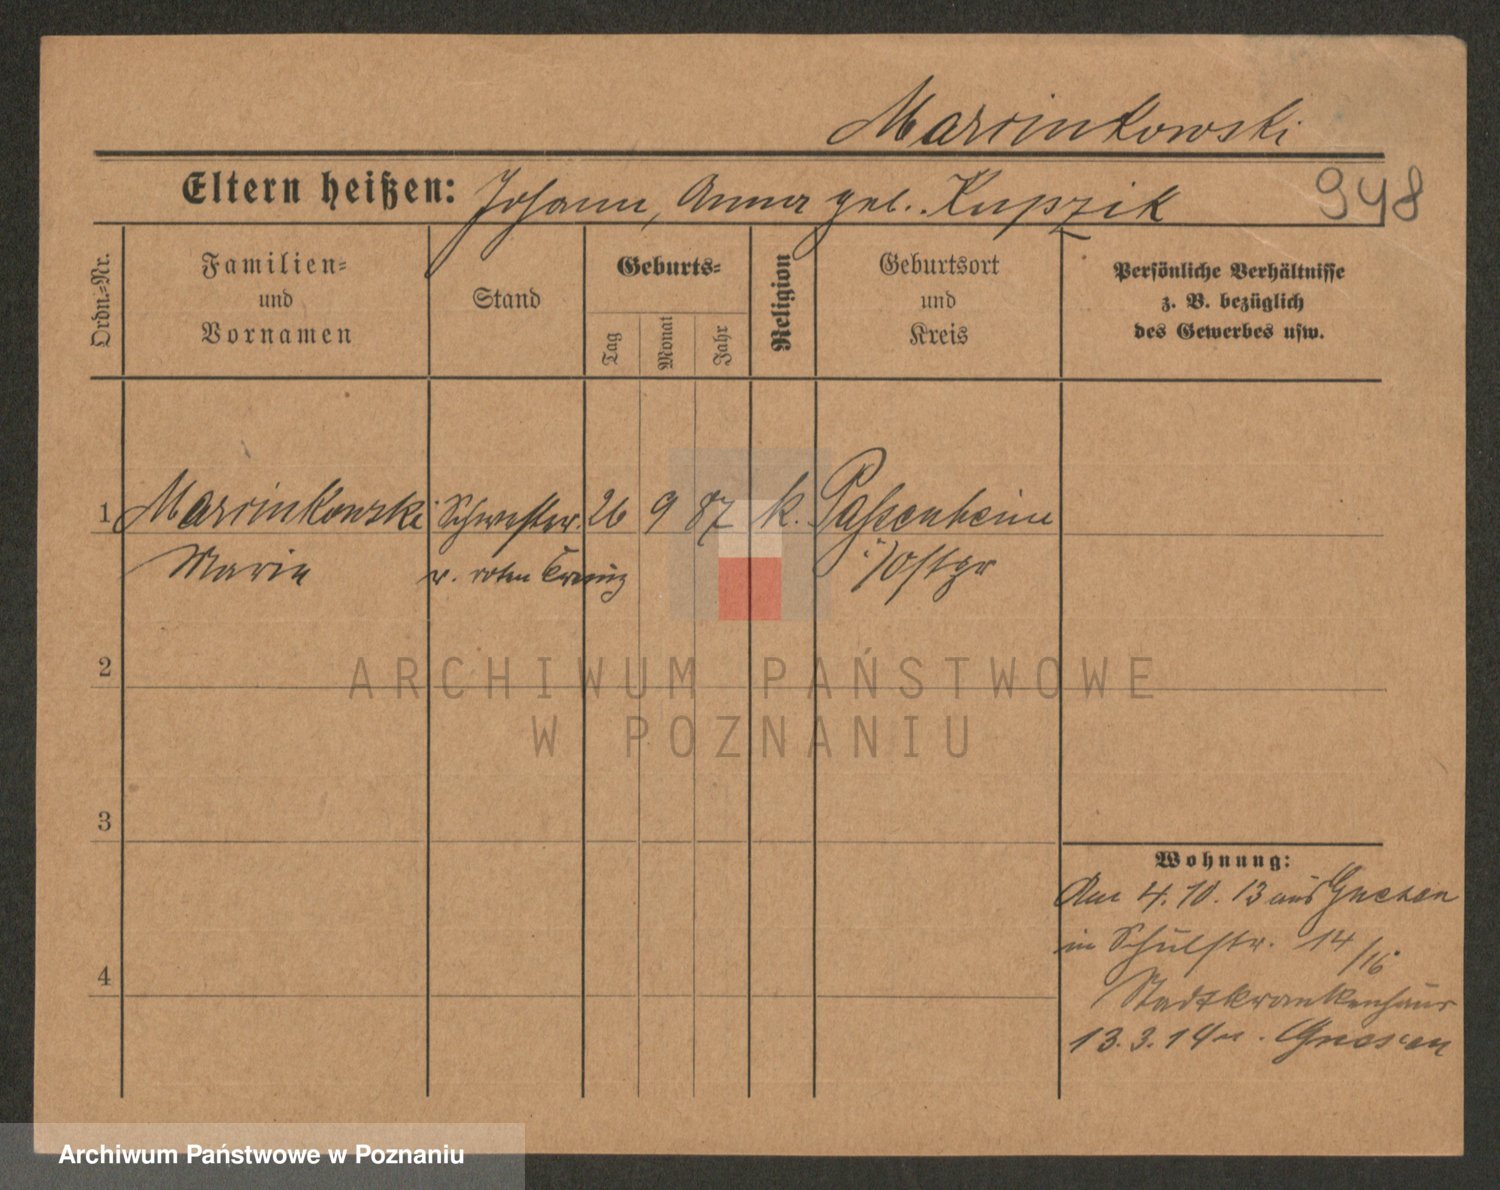 Marcinkowski
Eltern heißen: Johann, Anna geb. Kupzik
948
Ordn.=Nr.
Familien=
und
Vornamen
Stand
Geburts=
Tag
Monat
Jahr
Religion
Geburtsort
und
Kreis
Persönliche Verhältnisse
z. B. bezüglich
des Gewerbes usw.
1 Marcinkowski Schwester 26 9 87 k. Passenheim
Marie v. roten Kreuz i/Ostpr
2
ARCHIWUM PAŃSTWOWE
W POZNANIU
3
Wohnung:
Am 4. 10. 13 aus Gnesen
in Schulstr. 14/16
4
Stadtkrankenhaus
13. 3. 14 n. Gnesen
Archiwum Państwowe w Poznaniu